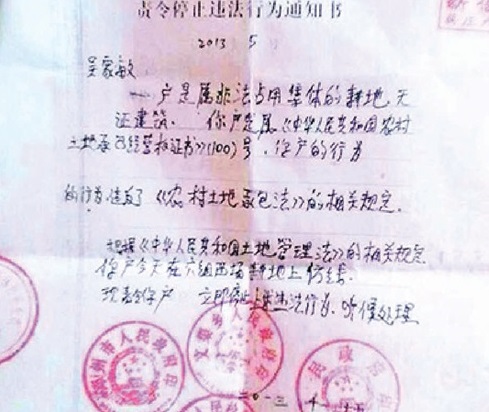 责令停止违法行为通知书
2013 5
吴家敏
一户是属非法占用集体的耕地无
证建筑. 你户是属《中华人民共和国农村
土地承包经营权证书》(100)号.你户的行为
的行为违反了《农村土地承包法》的相关规定.
根据《中华人民共和国土地管理法》的相关规定
你户今天在六组 耕地上
现责令你户 立即停止上述违法行为.听候处理
州市人民政府
人民政府
民政
二0一三